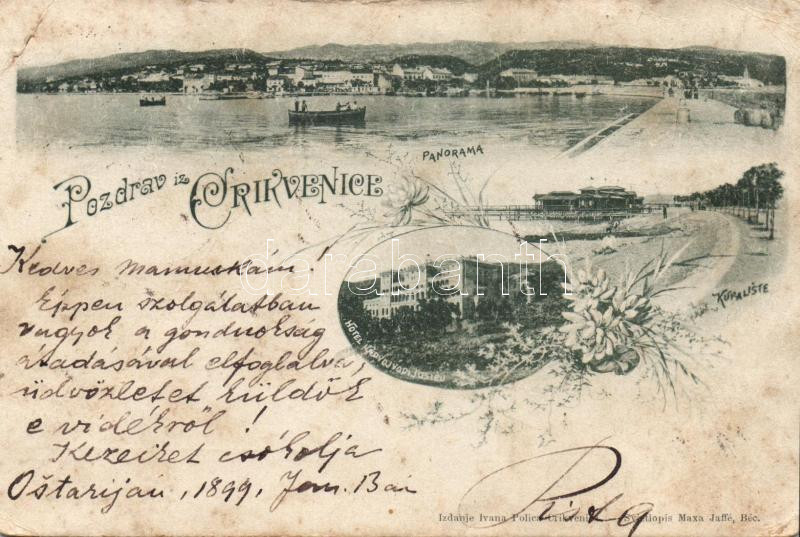 PANORAMA
Pozdrav iz CRIKVENICE
KUPALIŠTE
HÔTEL NADVOJVODA JOSIP
darabanth.com
Kedves mamuskám!
Éppen szolgálatban
vagyok a gondnokság
átadásával elfoglalva,
üdvözletet küldök
e vidékről!
Kezeiket csókolja
Oštarijan, 1899, Jan. 13án
Pista
Izdanje Ivana Polica Crikveni Svjetlopis Maxa Jaffé, Beč.